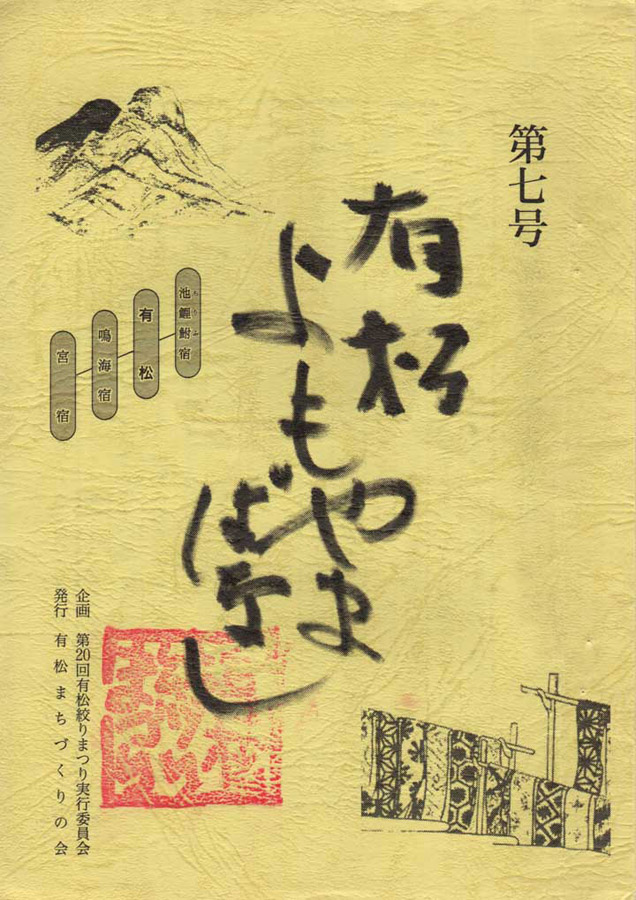 第七号
有松
よもやま
ばなし
池鯉鮒宿
ちりふ
有松
鳴海宿
宮宿
企画 第20回有松絞りまつり実行委員会
発行 有松まちづくりの会